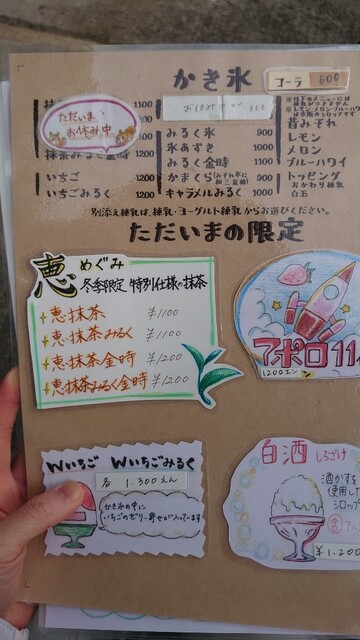 かき氷
コーラ 600
ただいま
お休み中
1100
1200
抹茶みるく金時 1200
いちご 1100
いちごみるく 1200
お休み中
みるく氷 900
氷あずき 1000
みるく金時 1100
かまくら 900
キャラメルみるく 1000
昔みぞれ
レモン
メロン
ブルーハワイ
トッピング
おかわり練乳
白玉
別添え練乳は、練乳・ヨーグルト練乳からお選びください。
ただいまの限定
恵 めぐみ
冬季限定 特別仕様の抹茶
恵抹茶 ¥1100
恵抹茶みるく ¥1100
恵抹茶金時 ¥1200
恵抹茶みるく金時 ¥1200
アポロ11
1200エン
Wいちご Wいちごみるく
各 1.300えん
かき氷の中に
いちごのゼリー寄せが入っています
白酒 しろざけ
酒かすを
使用した
シロップ
¥1.200